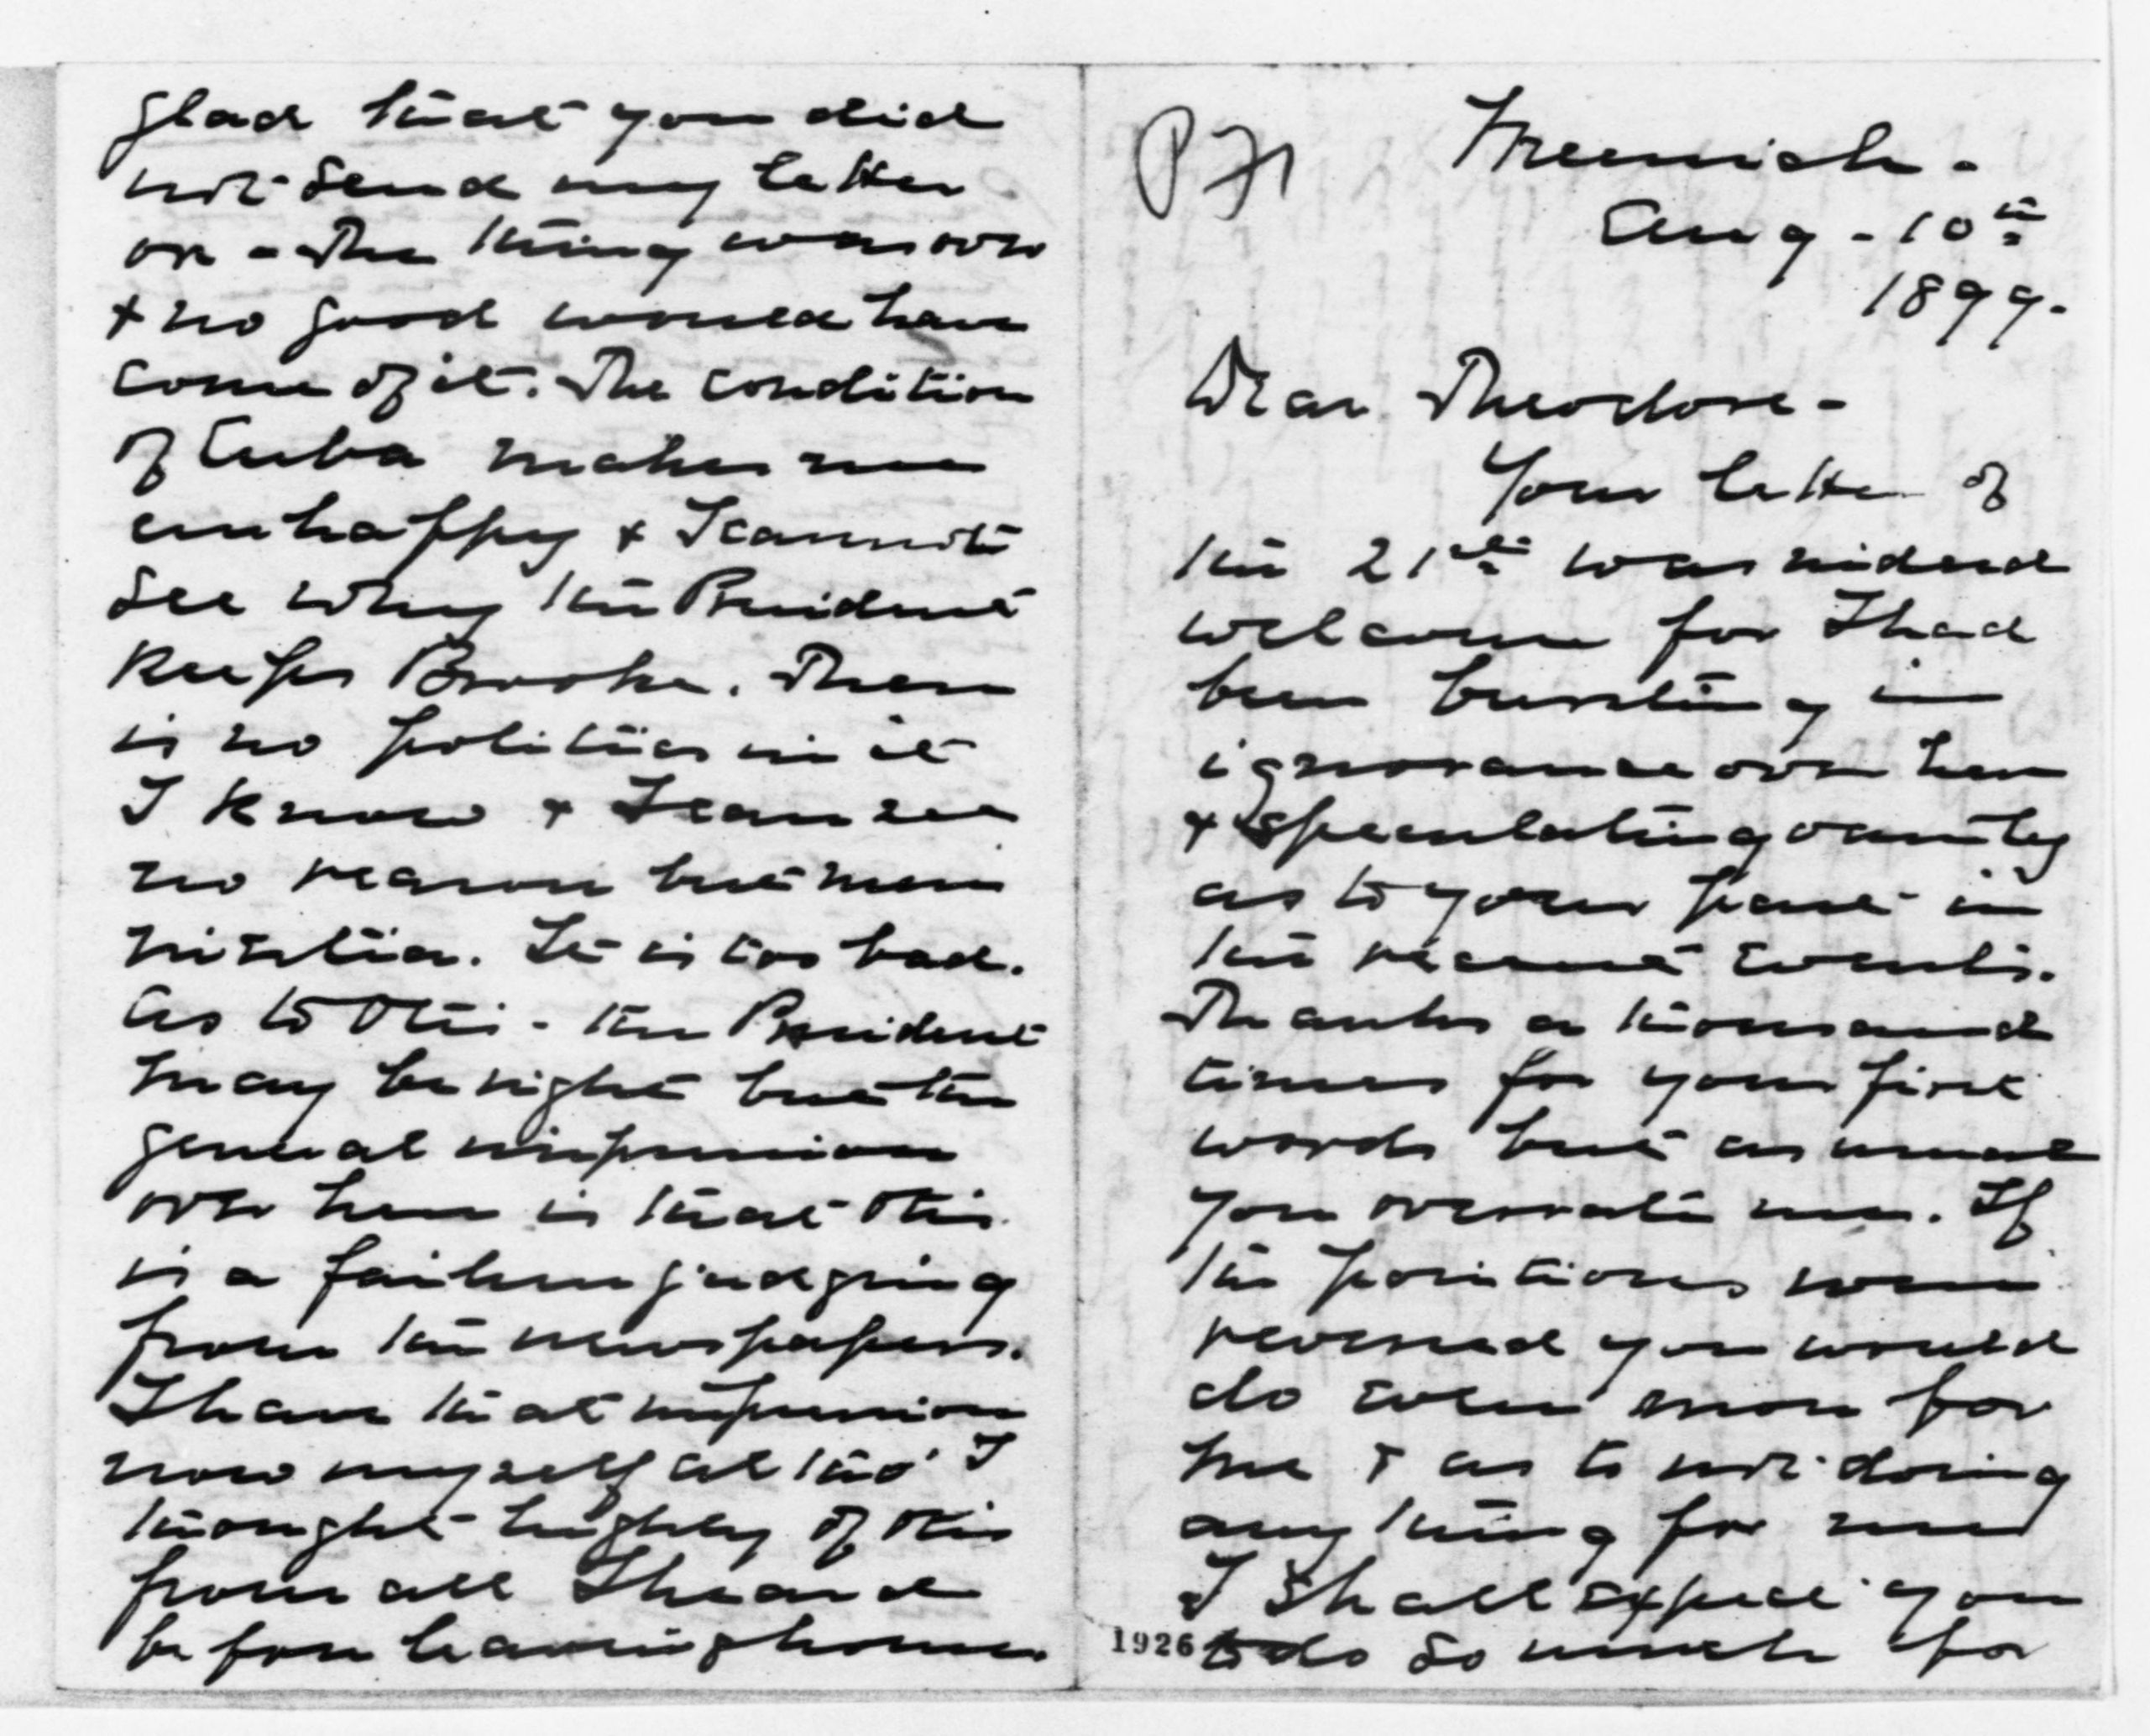 glad that you did
not send my letter
on - The thing was over
& no good would have
come of it. The condition
of Cuba makes me
unhappy & I cannot
see why the President
keeps Brooke. There
is no politics in it
I know & I can see
no reason but mere
inertia. It is too bad.
As to Otis - the President
may be right but the
general impression
over here is that Otis
is a failure judging
from the newspapers.
I have that impression
now myself altho' I
thought highly of Otis
from all I heard
before leaving home.
PF
Munich -
Aug - 10th
1899.
Dear Theodore -
Your letter of
the 21st was indeed
welcome for I had
been bursting in
ignorance over here
& speculating vainly
as to your part in
the recent events.
Thanks a thousand
times for your first
words but as usual
you overrate me. If
the positions were
reversed you would
do even more for
me & as to not doing
anything for me
I shall expect you
1926 to do so much for